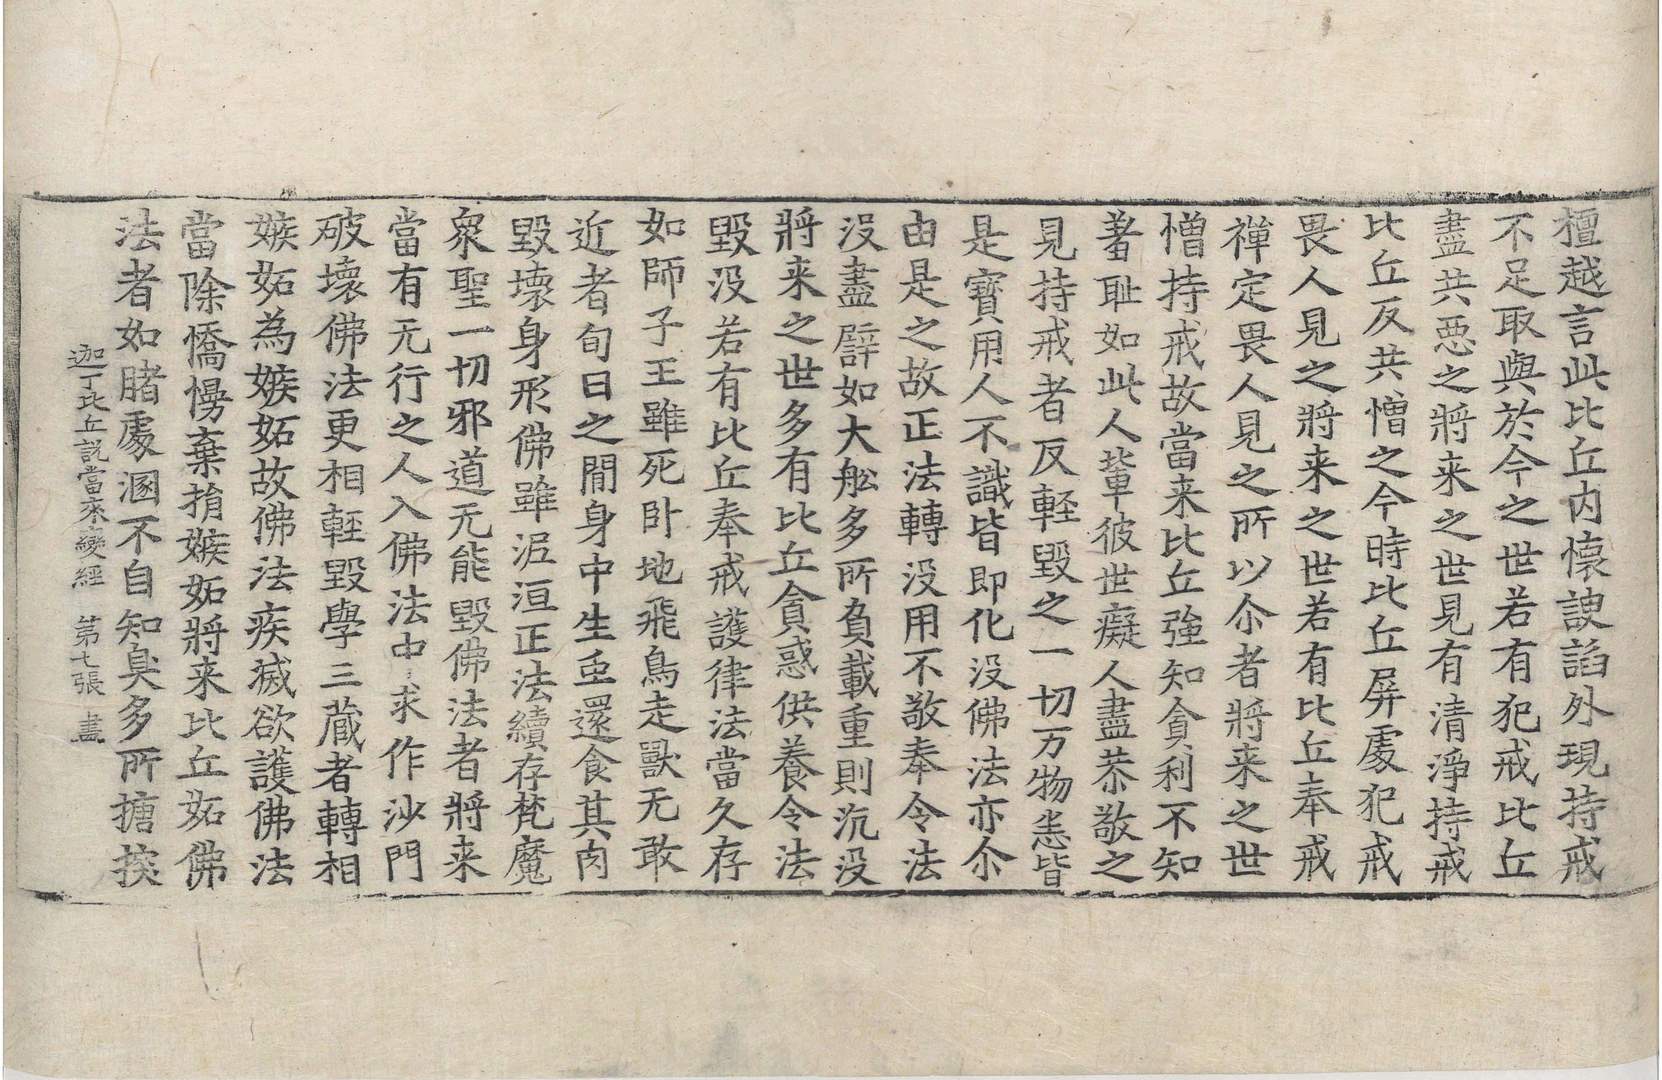 檀越言此比丘内懷諛謟外現持戒
不足取與於今之世若有犯戒比丘
盡共惡之將来之世見有清淨持戒
比丘反共憎之今時比丘屏處犯戒
畏人見之將来之世若有比丘奉戒
禪定畏人見之所以尒者將来之世
憎持戒故當来比丘強知貪利不知
著耻如此人輩彼世癡人盡恭敬之
見持戒者反輕毀之一切万物悉皆
是寶用人不識皆即化没佛法亦尒
由是之故正法轉没用不敬奉令法
没盡譬如大舩多所負載重則沉没
將来之世多有比丘貪惑供養令法
毀没若有比丘奉戒護律法當久存
如師子王雖死卧地飛鳥走獸无敢
近者旬日之閒身中生𧈧還食其肉
毀壞身形佛雖泥洹正法續存梵魔
衆聖一切邪道无能毀佛法者將来
當有无行之人入佛法中求作沙門
破壞佛法更相輕毀學三藏者轉相
嫉妬為嫉妬故佛法疾滅欲護佛法
當除憍慢棄捐嫉妬將来比丘妬佛
法者如猪處溷不自知臭多所搪揬
迦丁比丘說當來變經 第七張 畫